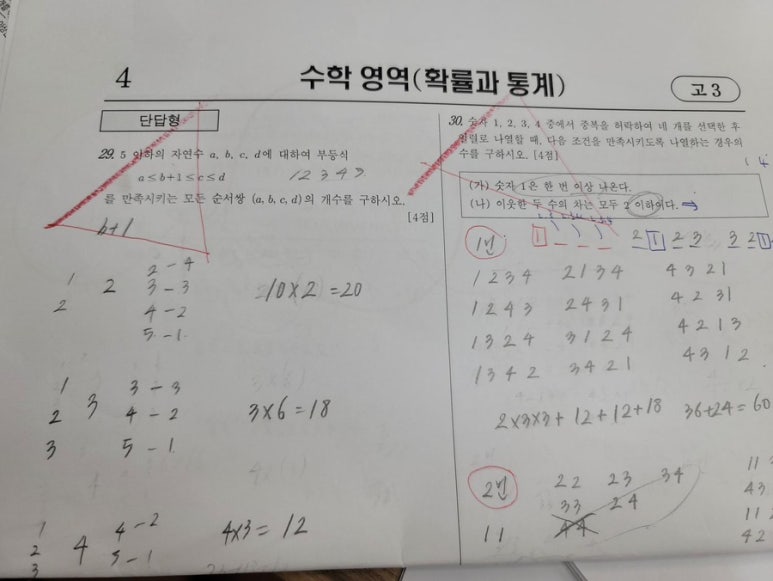 4
수학 영역(확률과 통계)
고 3
단답형
29. 5 이하의 자연수 a, b, c, d에 대하여 부등식
a ≤ b+1 ≤ c ≤ d
1 2 3 4 5
를 만족시키는 모든 순서쌍 (a, b, c, d)의 개수를 구하시오.
[4점]
b+1
1
2
2
2 - 4
3 - 3
4 - 2
5 - 1
10×2 = 20
1
2
3
3
3 - 3
4 - 2
5 - 1
3×6 = 18
1
2
3
4
4 - 2
5 - 1
4×3 = 12
30. 숫자 1, 2, 3, 4 중에서 중복을 허락하여 네 개를 선택한 후
일렬로 나열할 때, 다음 조건을 만족시키도록 나열하는 경우의
수를 구하시오. [4점]
1 4
(가) 숫자 1은 한 번 이상 나온다.
(나) 이웃한 두 수의 차는 모두 2 이하이다.
1번
1 _ _ _
2 1 2 3
3 2 1
1 2 3 4
2 1 3 4
4 3 2 1
1 2 4 3
2 4 3 1
4 2 3 1
1 3 2 4
3 1 2 4
4 2 1 3
1 3 4 2
3 4 2 1
4 3 1 2
2×3×3 + 12 + 12 + 18
36+24 = 60
2번
1 1
22
23
34
33
24
44
11
43
11 2
42